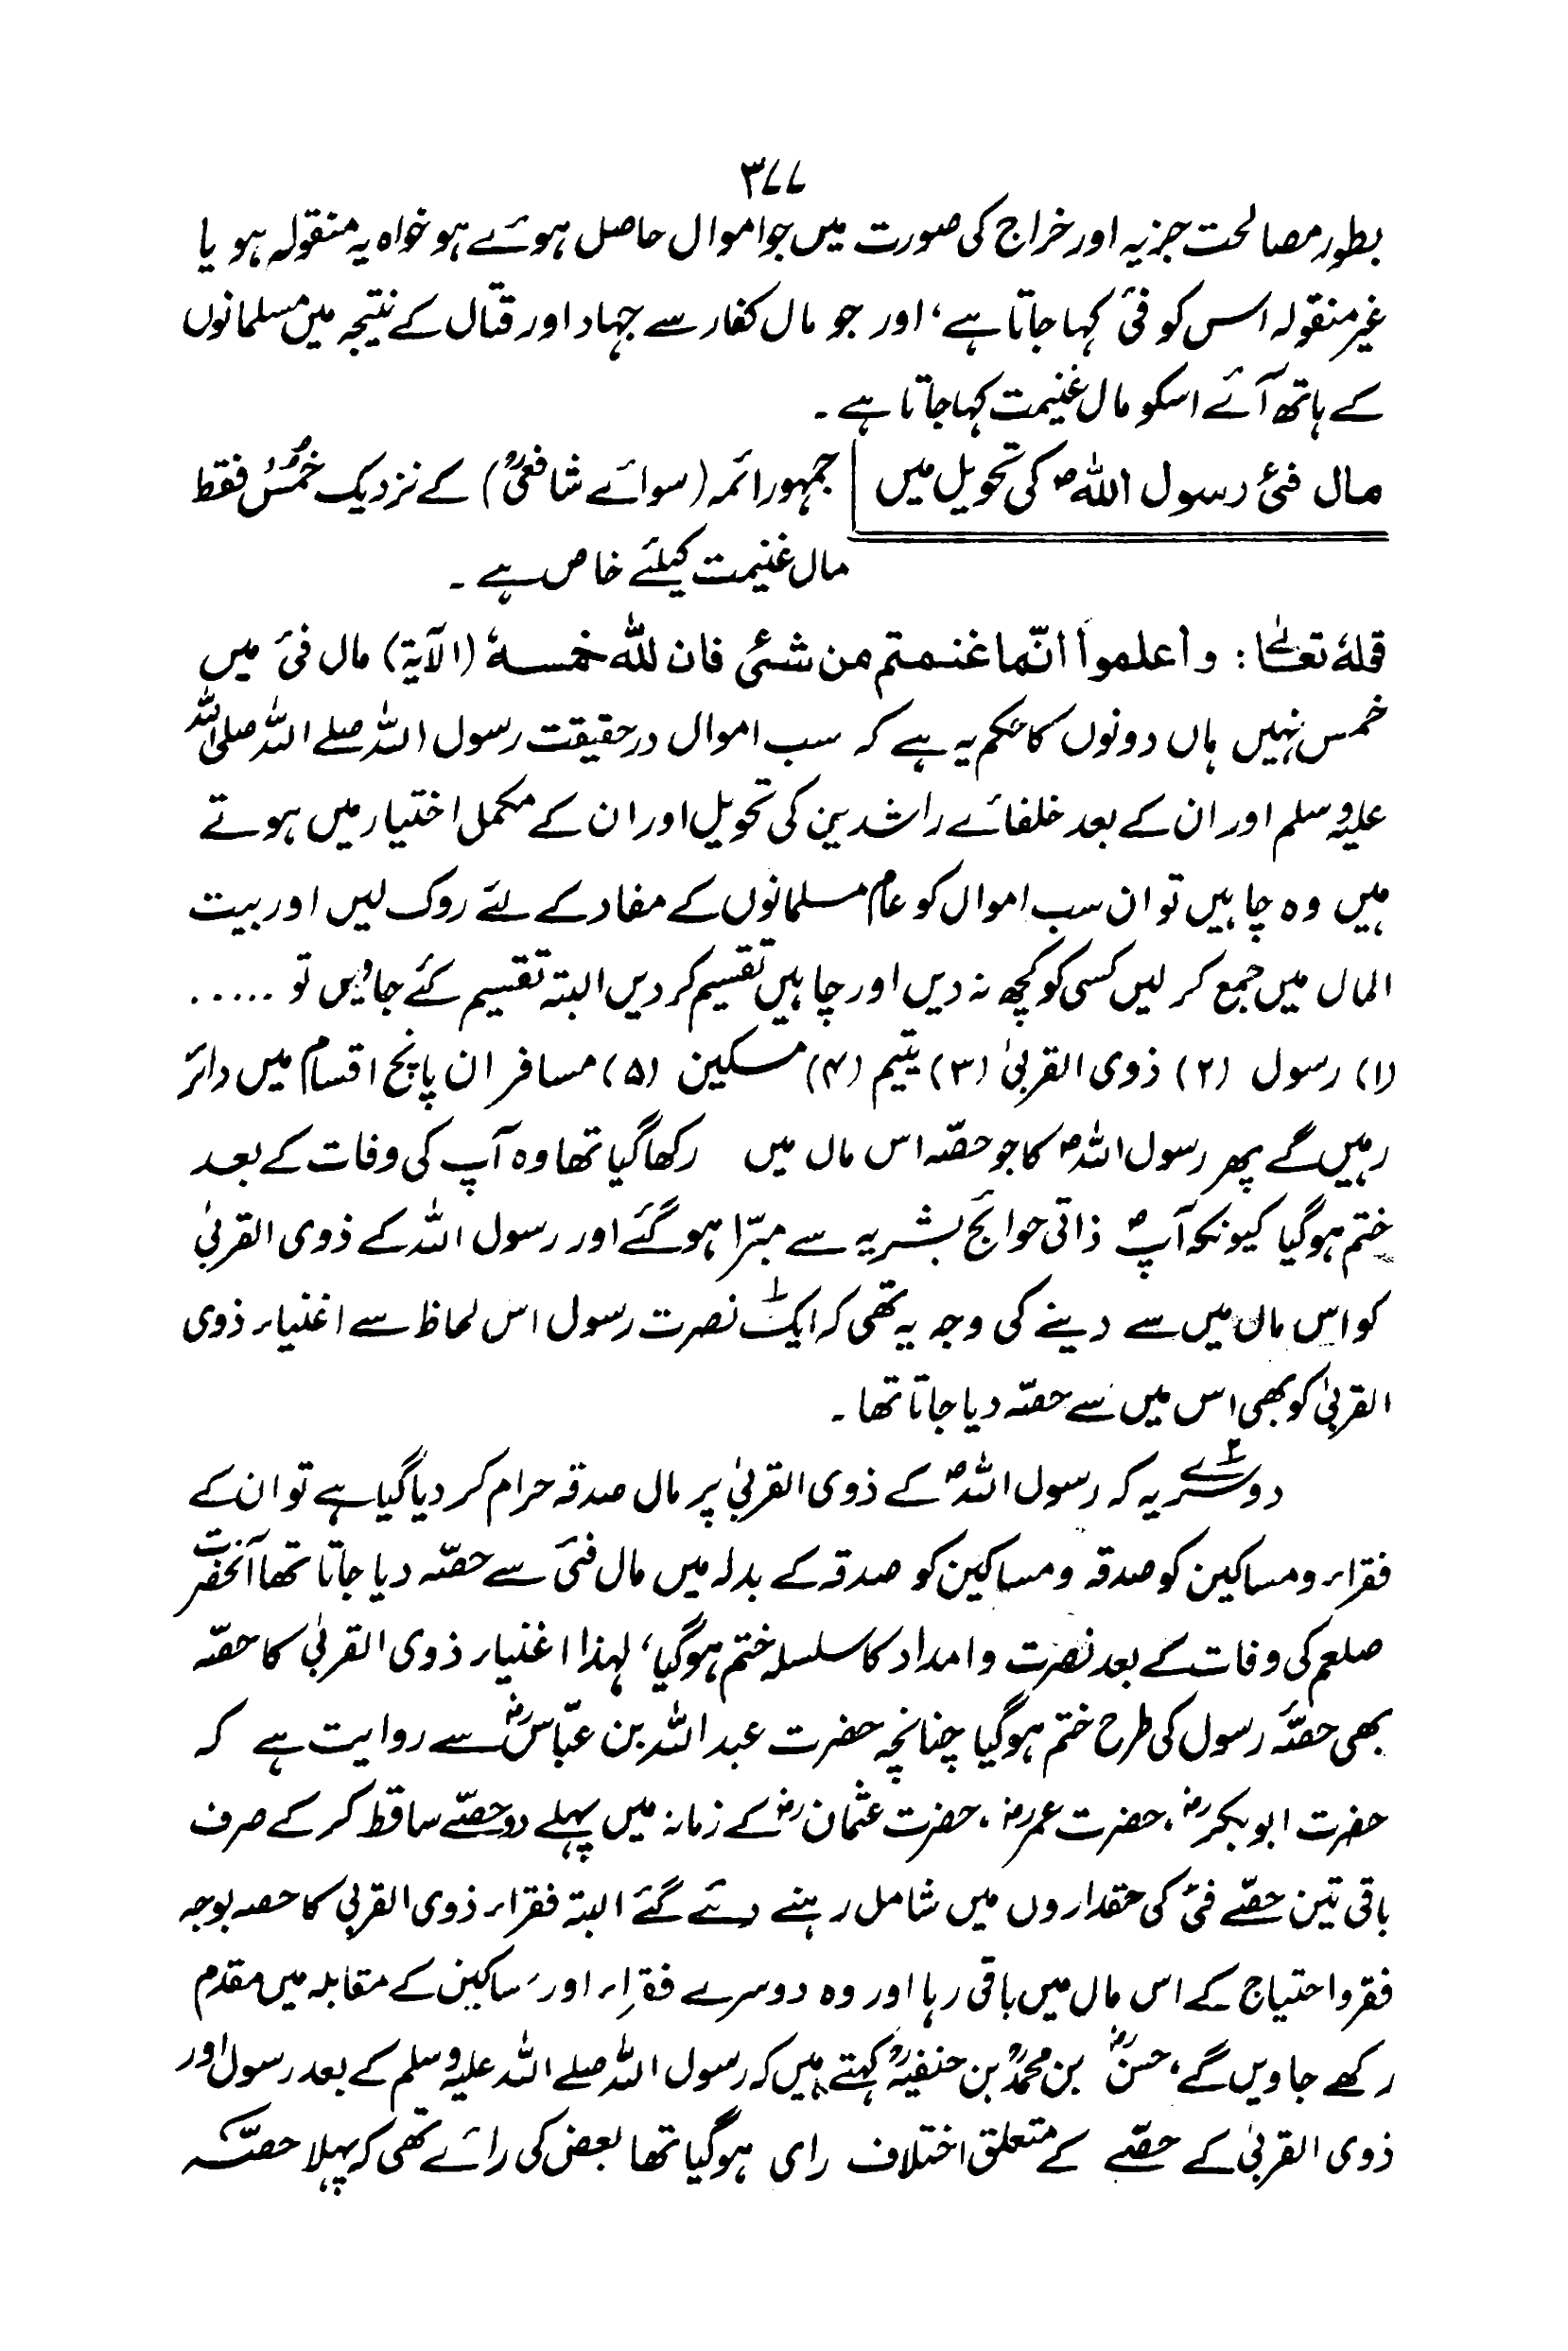 ۳۷۷
بطور مصالحت جزیہ اور خراج کی صورت میں جو اموال حاصل ہوئے ہو خواہ یہ منقولہ ہو یا
غیر منقولہ اس کو فئ کہا جاتا ہے، اور جو مال کفار سے جہاد اور قتال کے نتیجہ میں مسلمانوں
کے ہاتھ آئے اسکو مال غنیمت کہا جاتا ہے ۔
مال فئ رسول اللہؐ کی تحویل میں | جمہور ائمہ (سوائے شافعیؒ) کے نزدیک خُمُسْ فقط
مال غنیمت کیلئے خاص ہے ۔
قولہٗ تعالےٰ : واعلموا انّما غنمتم من شئی فان للّٰہ خمسہٗ (الآیۃ) مال فئ میں
خمس نہیں ہاں دونوں کا حکم یہ ہے کہ سب اموال درحقیقت رسول اللہ صلے اللہ صلی اللہ
علیہ وسلم اور ان کے بعد خلفائے راشدین کی تحویل اور ان کے مکمل اختیار میں ہوتے
ہیں وہ چاہیں تو ان سب اموال کو عام مسلمانوں کے مفاد کے لئے روک لیں اور بیت
المال میں جمع کر لیں کسی کو کچھ نہ دیں اور چاہیں تقسیم کر دیں البتہ تقسیم کئے جاویں تو .....
(۱) رسول (۲) ذوی القربیٰ (۳) یتیم (۴) مسکین (۵) مسافر ان پانچ اقسام میں دائر
رہیں گے پھر رسول اللہؐ کا جو حصّہ اس مال میں رکھا گیا تھا وہ آپ کی وفات کے بعد
ختم ہو گیا کیونکہ آپؐ ذاتی حوائج بشریہ سے مبرّا ہو گئے اور رسول اللہ کے ذوی القربیٰ
کو اس مال میں سے دینے کی وجہ یہ تھی کہ ایک ۱؎ نصرت رسول اس لحاظ سے اغنیاء ذوی
القربیٰ کو بھی اس میں سے حصّہ دیا جاتا تھا ۔
دوسرے ۲؎ یہ کہ رسول اللہؐ کے ذوی القربیٰ پر مال صدقہ حرام کر دیا گیا ہے تو ان کے
فقراء و مساکین کو صدقہ و مساکین کو صدقہ کے بدلہ میں مال فئ سے حصّہ دیا جاتا تھا آنحضرت
صلعم کی وفات کے بعد نصرت و امداد کا سلسلہ ختم ہو گیا، لہذا اغنیاء ذوی القربیٰ کا حصّہ
بھی حصّۂ رسول کی طرح ختم ہو گیا چنانچہ حضرت عبد اللہ بن عبّاسؓ سے روایت ہے کہ
حضرت ابو بکرؓ، حضرت عمرؓ، حضرت عثمانؓ کے زمانہ میں پہلے دو حصّے ساقط کر کے صرف
باقی تین حصّے فئ کی حقداروں میں شامل رہنے دئے گئے البتہ فقراء ذوی القربیٰ کا حصہ بوجہ
فقر و احتیاج کے اس مال میں باقی رہا اور وہ دوسرے فقراء اور مساکین کے مقابلہ میں مقدم
رکھے جاویں گے، حسنؓ بن محمدؒ بن حنفیہؒ کہتے ہیں کہ رسول اللہ صلے اللہ علیہ وسلم کے بعد رسول اور
ذوی القربیٰ کے حصّے کے متعلق اختلاف رای ہو گیا تھا بعض کی رائے تھی کہ پہلا حصّہ